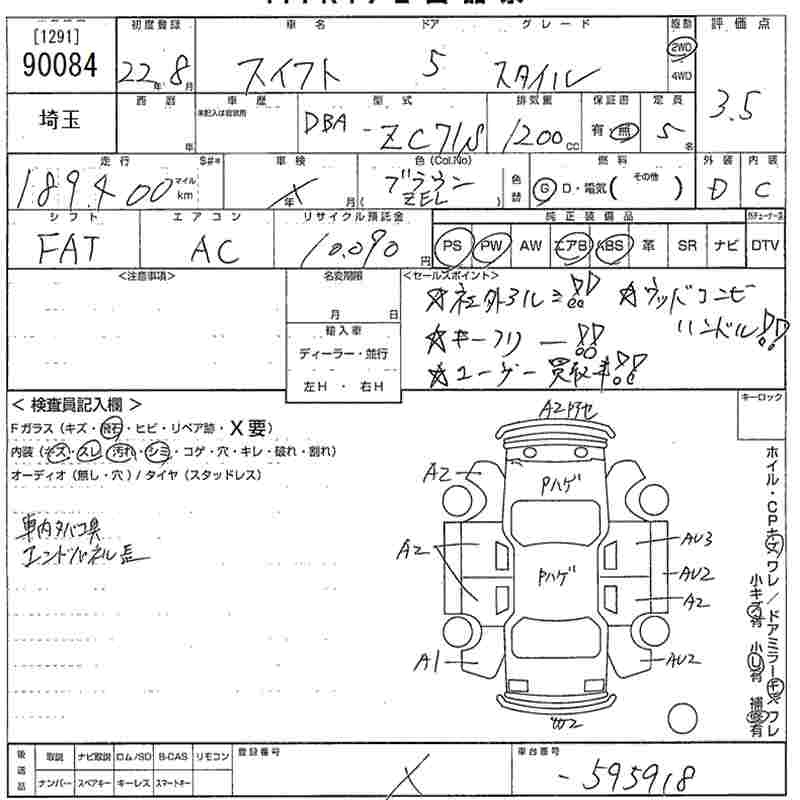 [1291]
90084
初度登録 車名 ドア グレード 駆動 評価点
22年 8月 スイフト 5 スタイル 2WD 4WD 3.5
埼玉 西暦 車歴 型式 排気量 保証書 定員
年 未記入は自家用 DBA -ZC71S 1200cc 有・無 5名
走行 S#* 車検 色(Col.No) 燃料 外装 内装
189,400 マイル km X 年 月 ブラウン ( ZEL ) 色替 G D・電気 その他( ) D C
シフト エアコン リサイクル預託金 純正装備品
FAT AC 10,090円 PS PW AW エアB ABS 革 SR ナビ DTV
<注意事項> 名変期限 <セールスポイント>
月 日
☆社外アルミ!! ☆ウッドコンビ
ハンドル!!
輸入車
☆キーフリー!!
ディーラー・並行
☆ユーザー買取車!!
左H ・ 右H
< 検査員記入欄 > キーロック
Fガラス (キズ・飛石・ヒビ・リペア跡・X要)
内装 (キズ・スレ・汚れ・シミ・コゲ・穴・キレ・破れ・割れ)
オーディオ (無し・穴) / タイヤ (スタッドレス)
車内タバコ臭
エンドパネル歪
Pハゲ
A2
A2 Pハゲ AU3
AU2
A2
A1 AU2
ホイル・CPキズワレ / ドアミラーキズワレ
小キズ有 小U有 補修有
後送品 取説 ナビ取説 ロム/SD B-CAS リモコン 登録番号 車台番号
ナンバー スペアキー キーレス スマートキー X -595918